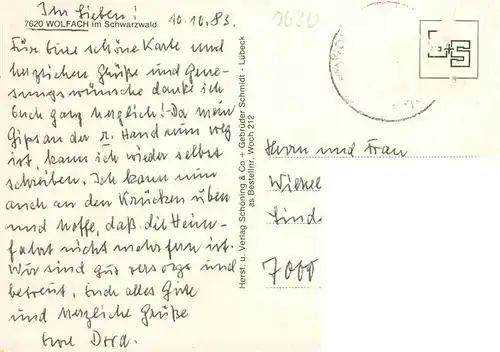 Ihr Lieben! 10.10.83.
7620 WOLFACH im Schwarzwald
Für Eure schöne Karte und
herzlichen Grüße und Gene-
sungswünsche danke ich
Euch ganz herzlich! Da mein
Gips an der r. Hand nun weg
ist, kann ich wieder selbst
schreiben. Ich kann nun
auch an den Krücken üben
und hoffe, daß die Heim-
fahrt nicht mehr fern ist.
Wir sind gut versorgt und
betreut. Euch alles Gute
und herzliche Grüße
Eure Dora.
Herst. u. Verlag Schöning & Co + Gebrüder Schmidt - Lübeck
as Bestellnr. Woch 212
L+S
Herrn und Frau
Lind
7000